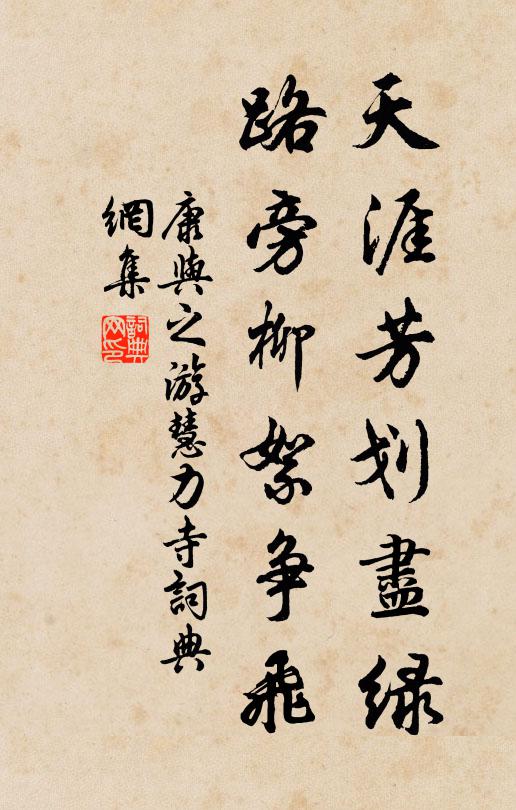 天涯芳划盡綠
路旁柳絮争飛
康與之游慧力寺詞典
網集
詞典
网印